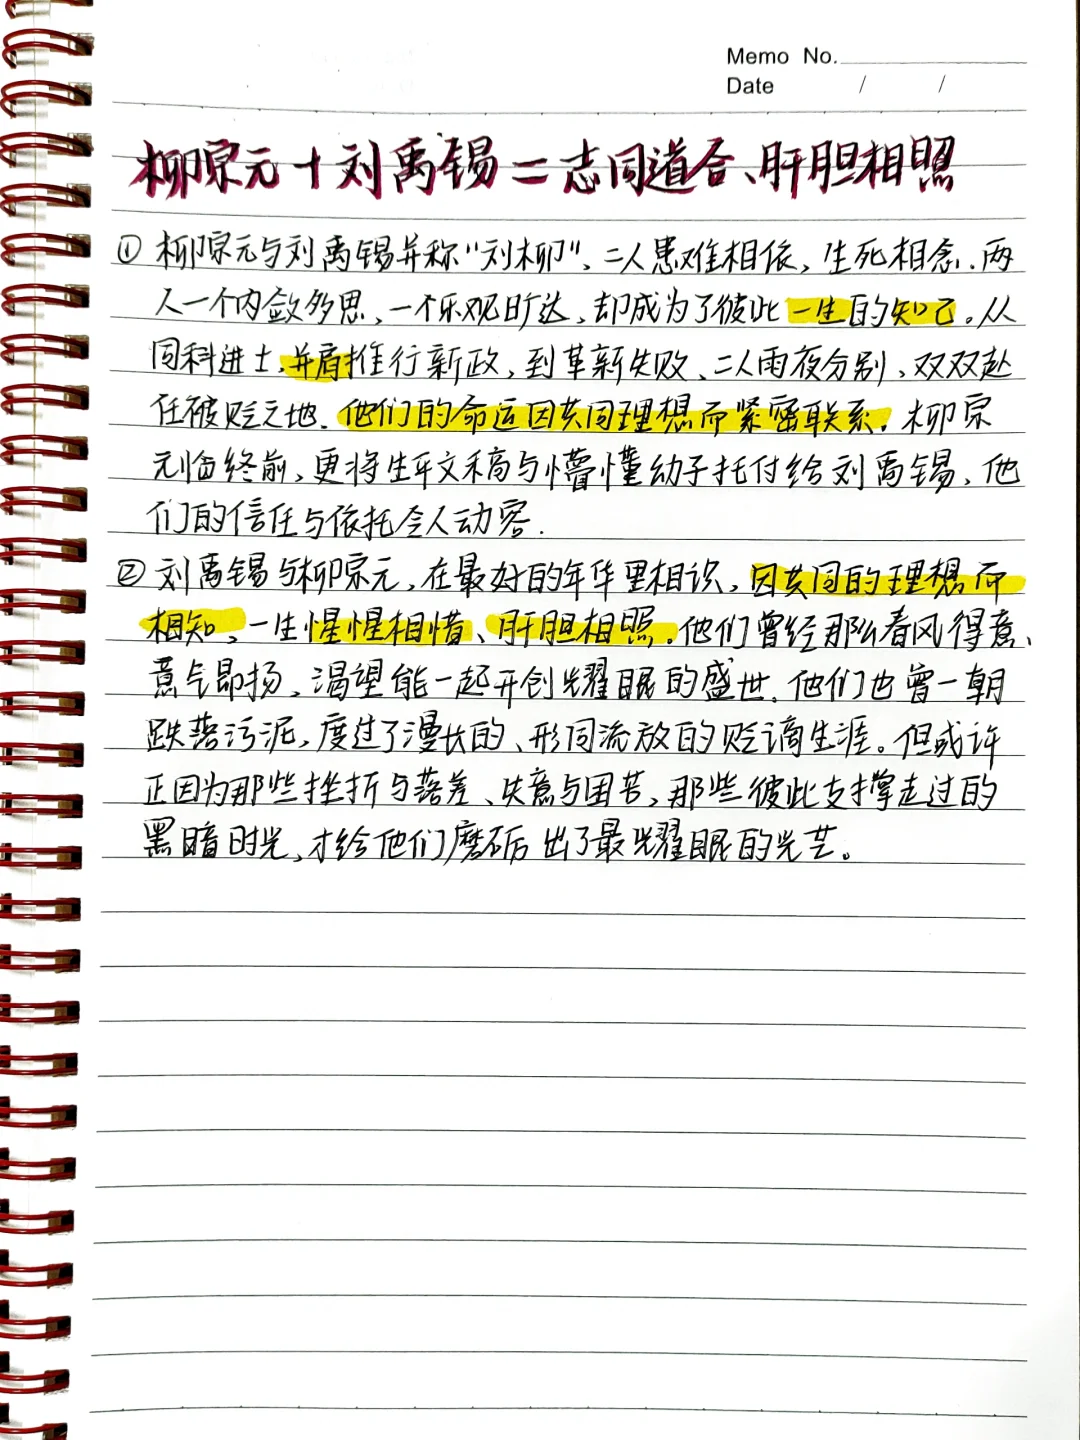 Memo No.
Date / /
柳宗元+刘禹锡=志同道合、肝胆相照
① 柳宗元与刘禹锡并称“刘柳”、二人患难相依，生死相念.两
人一个内敛多思、一个乐观旷达，却成为了彼此一生的知己。从
同科进士,并肩推行新政，到革新失败、二人雨夜分别、双双赴
任被贬之地.他们的命运因共同理想而紧密联系。柳宗
元临终前，更将生平文稿与懵懂幼子托付给刘禹锡，他
们的信任与依托令人动容.
② 刘禹锡与柳宗元，在最好的年华里相识，因共同的理想而
相知、一生惺惺相惜、肝胆相照。他们曾经那么春风得意、
意气昂扬，渴望能一起开创耀眼的盛世.他们也曾一朝
跌落污泥，度过了漫长的、形同流放的贬谪生涯。但或许
正因为那些挫折与落差、失意与困苦，那些彼此支撑走过的
黑暗时光，才给他们磨砺出了最耀眼的光芒。